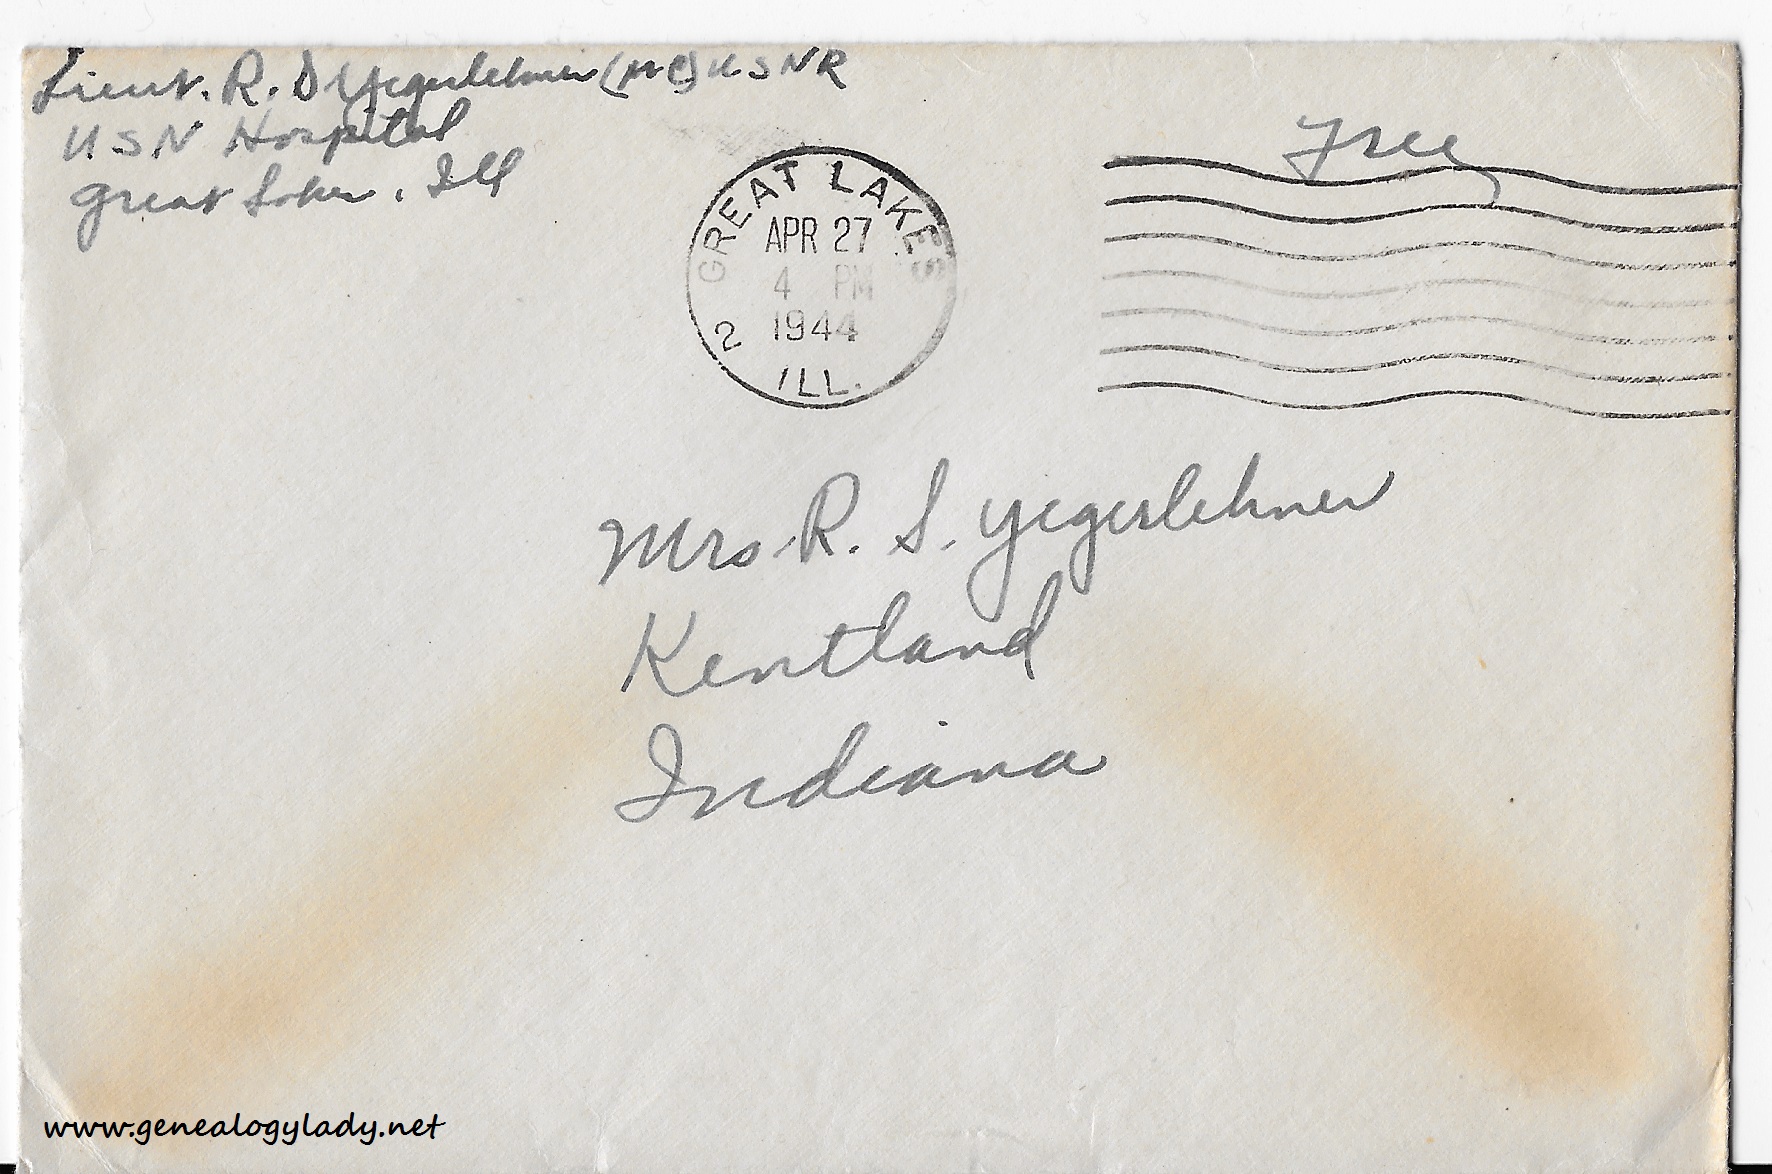 Lieut. R. D Yegerlehner (MC) USNR
USN Hospital
Great Lakes, Ill
Free
GREAT LAKES
APR 27
4 PM
1944
2
ILL.
Mrs. R. S. Yegerlehner
Kentland
Indiana
www.genealogylady.net